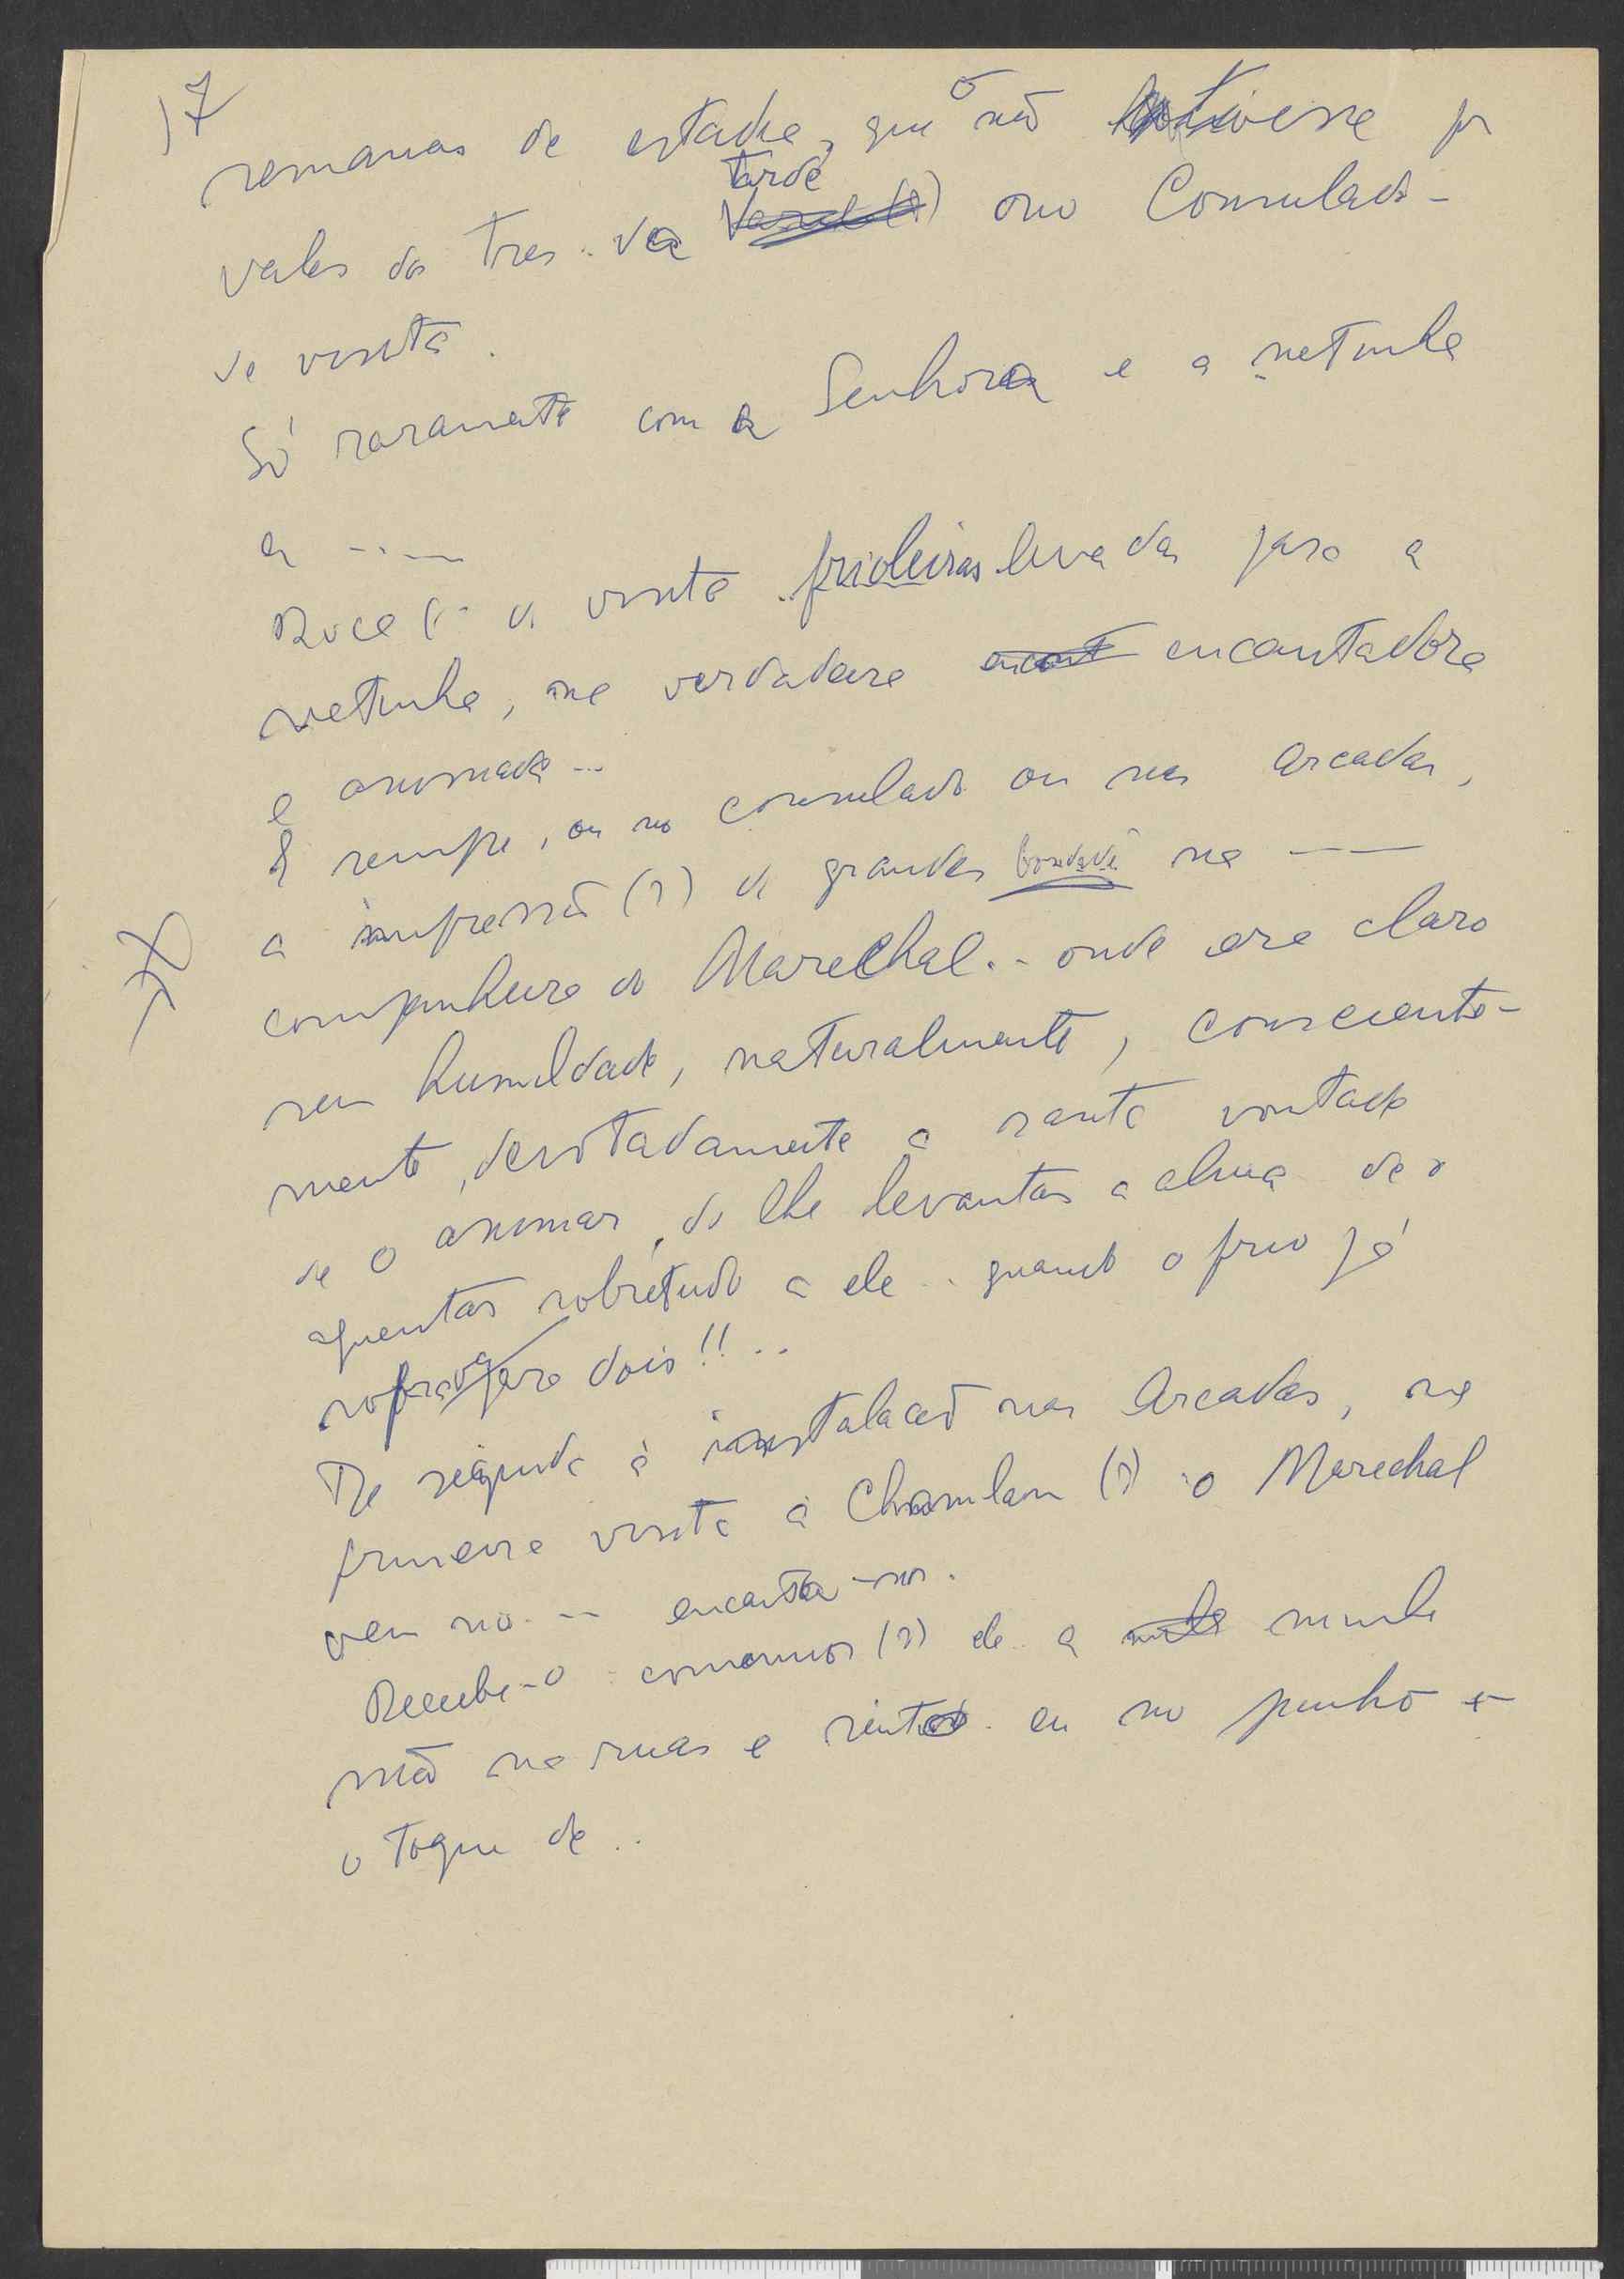 17
semanas de estadia, que o não tivesse por
volta das tres da tarde no Consulado -
de visita.
Só raramente com a Senhora e a netinha
a ...—
de visita frioleiras levadas para a
netinha, uma verdadeira encant encantadora
e animada ...
E sempre, ou no consulado ou nas Arcadas,
a impressão (?) de grandes bondade na ——
companheira do Marechal.. onde era claro
sem humildade, naturalmente, consciente-
mente, devotadamente a santa vontade
de o animar, de lhe levantar a alma de o
aguentar sobretudo a ele .. quando o frio já
soprava para dois!! ..
De seguida á instalação nas Arcadas, na
primeira visita a (?) o Marechal
vem no -- encanta-nos.
Recebe-o (?) ele a minha
mão nas suas e eu no punho
o toque de ..